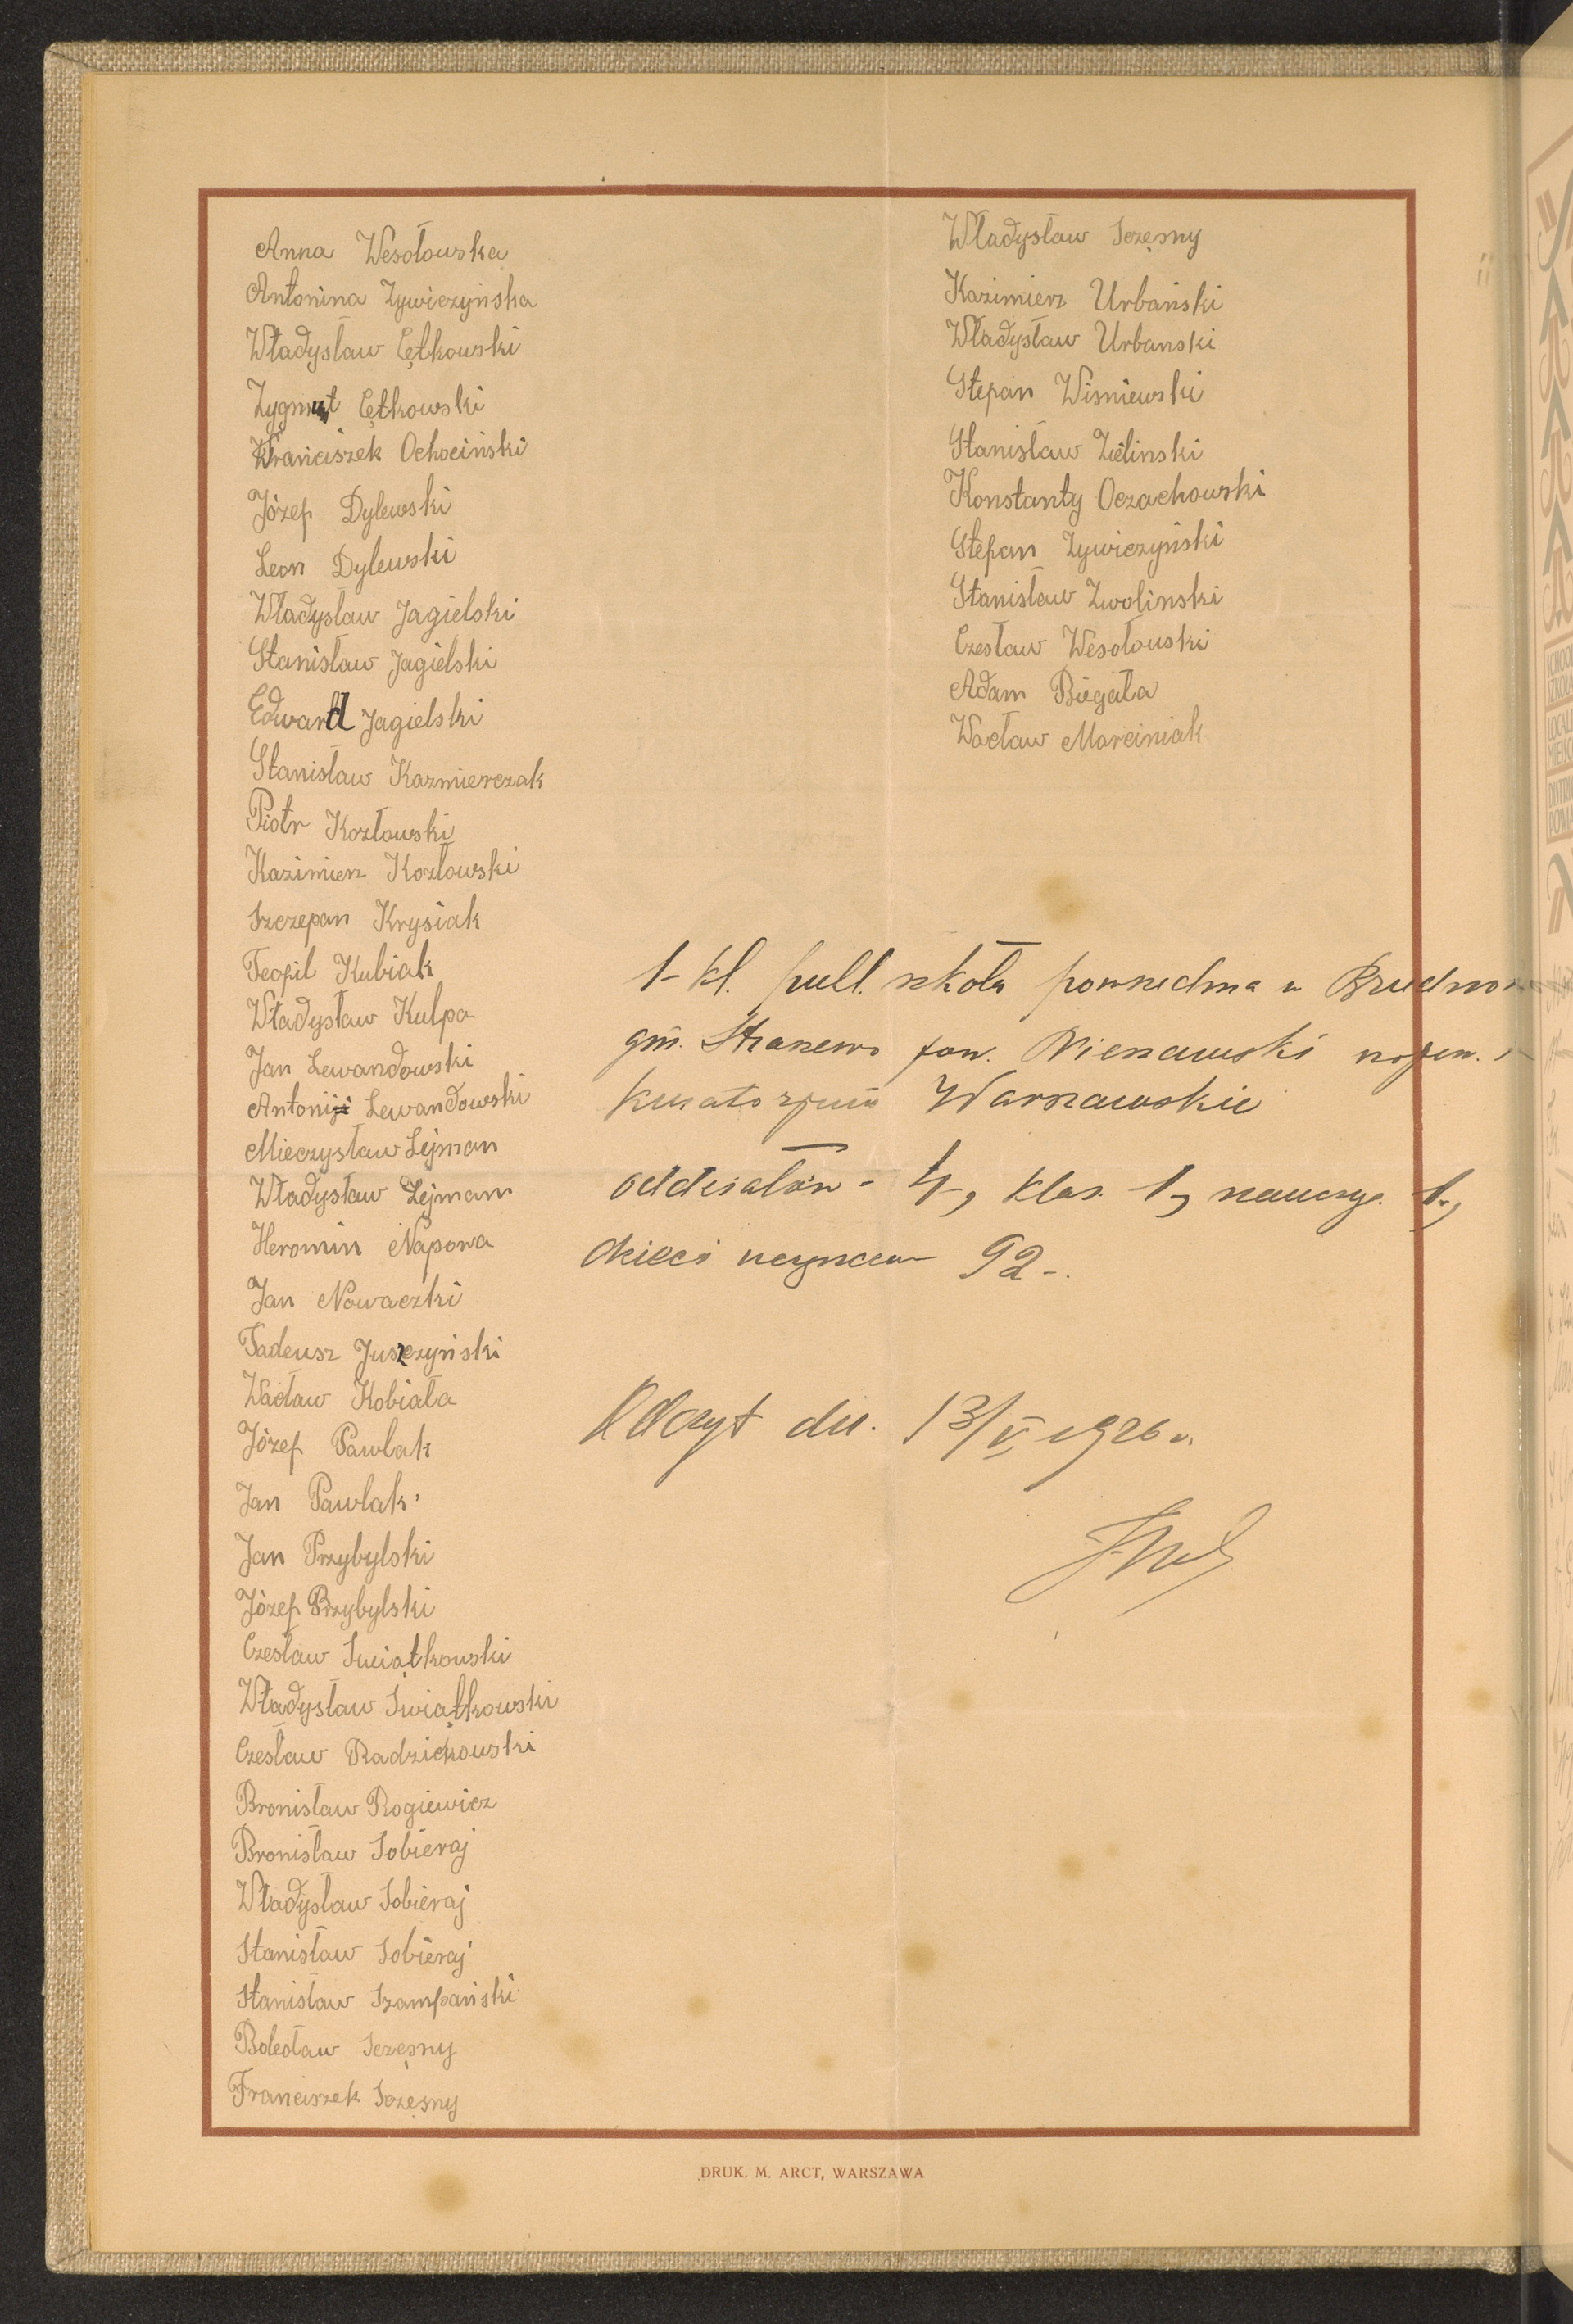 Anna Wesołowska
Antonina Zywiczyńska
Władysław Cętkowski
Zygmut Cętkowski
Franciszek Ochociński
Józef Dylewski
Leon Dylewski
Władysław Jagielski
Stanisław Jagielski
Edward Jagielski
Stanisław Kazmierczak
Piotr Kozłowski
Kazimierz Kozłowski
Szczepan Krysiak
Teofil Kubiak
Władysław Kulpa
Jan Lewandowski
Antoni Lewandowski
Mieczysław Lejman
Władysław Lejman
Heromin Napora
Jan Nowaczki
Tadeusz Juszczyński
Wacław Kobiała
Józef Pawlak
Jan Pawlak
Jan Przybylski
Józef Przybylski
Czesław Swiątkowski
Władysław Swiątkowski
Czesław Radzichowski
Bronisław Rogiewicz
Bronisław Sobieraj
Władysław Sobieraj
Stanisław Sobieraj
Stanisław Szampański
Bolesław Sczęsny
Franciszek Sczęsny
Władysław Sczęsny
Kazimierz Urbański
Władysław Urbanski
Stefan Wisniewski
Stanisław Zielinski
Konstanty Oczachowski
Stefan Zywiczyński
Stanisław Zwolinski
Czesław Wesołowski
Adam Biegała
Wacław Marciniak
1-kl. publ. szkoła powszechna w
gm. Straszewo pow. Nieszawski
kuratorjum Warszawskie
oddziałów - 4, klas 1, nauczyc. 1,
dzieci uczęszcza 92-.
Odczyt dn. 13/V 1926 r.
DRUK. M. ARCT, WARSZAWA